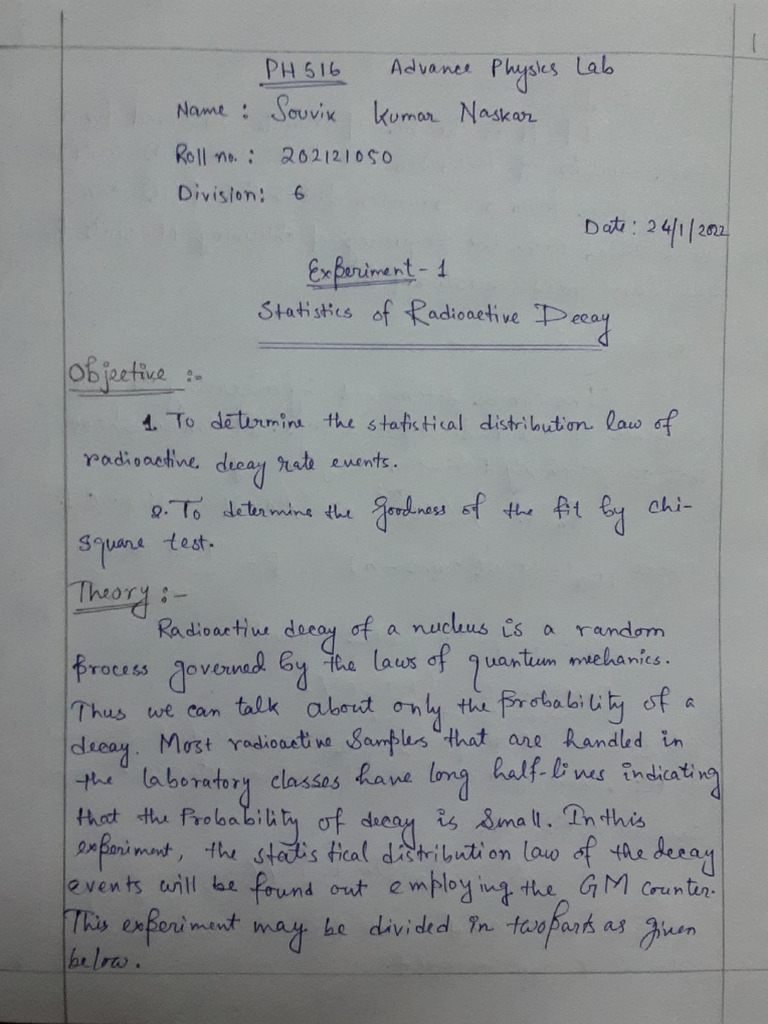 1
PH 516 Advance Physics Lab
Name : Souvik Kumar Naskar
Roll no. : 202121050
Division: 6
Date: 24/1/2022
Experiment - 1
Statistics of Radioactive Decay
Objective :-
1. To determine the statistical distribution law of
radioactive decay rate events.
2. To determine the goodness of the fit by chi-
square test.
Theory :-
Radioactive decay of a nucleus is a random
process governed by the laws of quantum mechanics.
Thus we can talk about only the probability of a
decay. Most radioactive samples that are handled in
the laboratory classes have long half-lives indicating
that the probability of decay is small. In this
experiment, the statistical distribution law of the decay
events will be found out employing the GM counter.
This experiment may be divided in two parts as given
below.